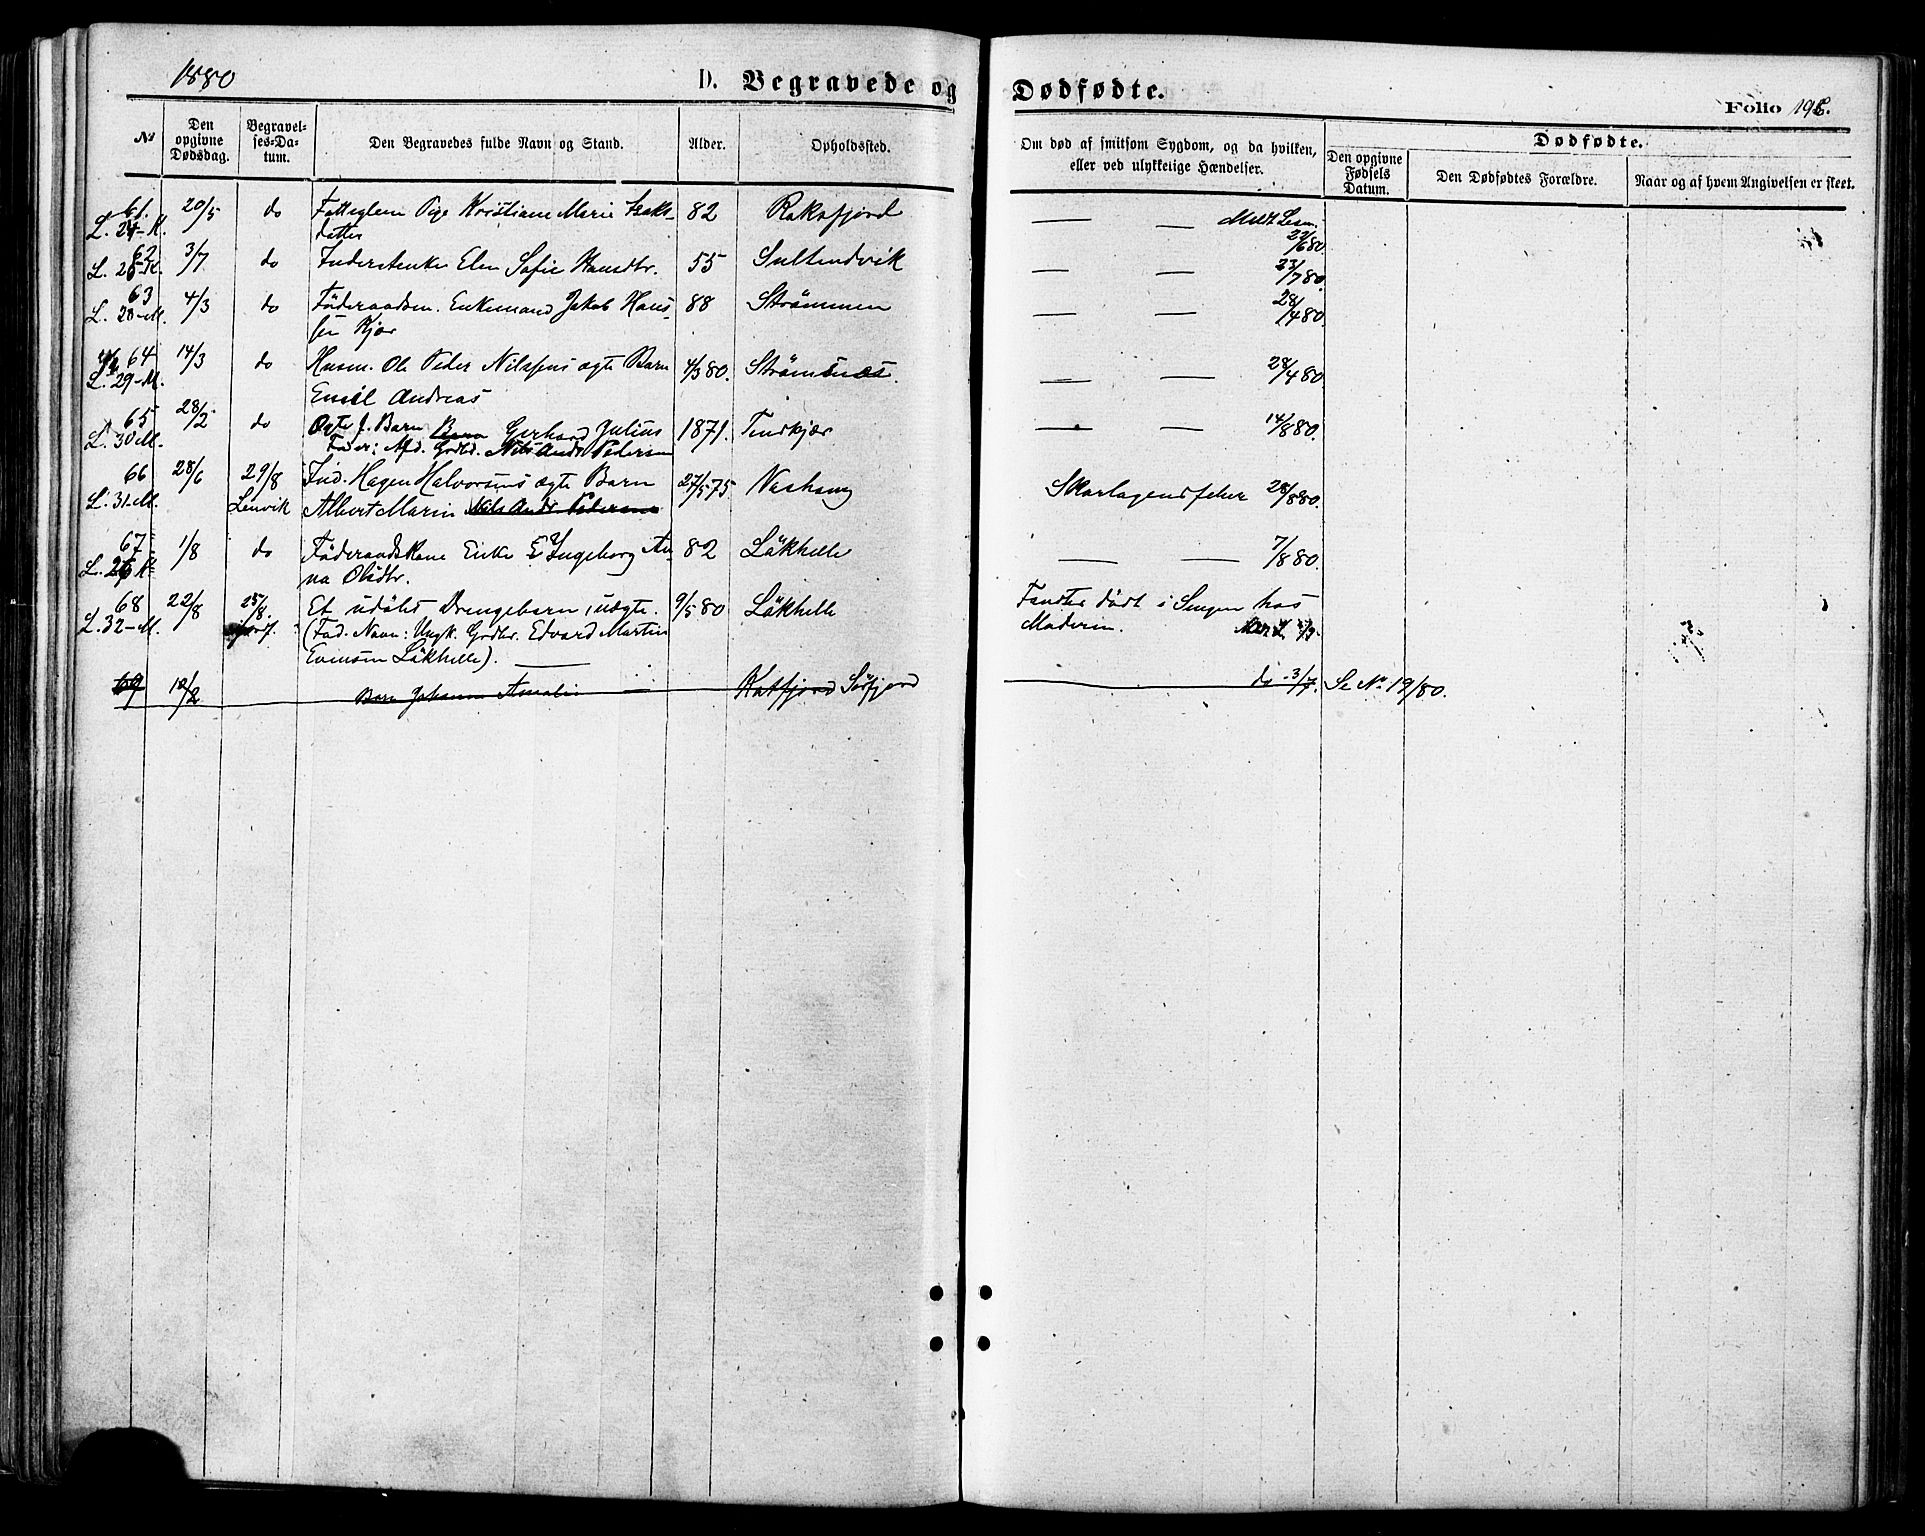 1880
D. Begravede og Dødfødte.
Folio 196.
No
Den opgivne Dødsdag.
Begravelses-Datum.
Den Begravedes fulde Navn og Stand.
Alder.
Opholdssted.
Om død af smitsom Sygdom, og da hvilken, eller ved ulykkelige Hændelser.
Dødfødte.
Den opgivne Fødsels Datum.
Den Dødfødtes Forældre.
Naar og af hvem Angivelsen er skeet.
61. 20/5 do Fattiglem Pige Kristiane Marie Isaks- 82 Raksfjord — —
L. 24-K. datter 22/6 80.
62 3/7 do Inderstenke Elen Sofie Hansdtr. 55 Sultendvik — — 23/7 80.
63 4/3 do Föderaadsm. Enkemand Jakob Hans- 88 Strömmen — — 28/4 80.
L. 28-M. sen Kjær
64 14/3 do Husm. Ole Peder Nilssens ægte Barn 4/3 80. Strömsnæs. — — 28/4 80
L. 29-M. Emil Andreas
65 28/2 do Ægte f. Barn Barn Gerhard Julius 1871. Tindkjær — — 14/8 80.
L. 30 M. Fader: Afd. Grdbr. Nils Andr. Pedersen
66 28/6 29/8 Ind. Hagen Halvorsens ægte Barn 27/5 75 Skarlagensfeber 28/8 80.
L. 31-M. Lenvik Albert Marin Nils Andr. Pedersen
67 1/8 do Föderaadskone Enke E Ingeborg An- 82 Läkhelle — — 7/8 80.
L. 26 K na Olsdtr.
68 22/8 25/8 Et udöbt Drengebarn, uægte. 9/5 80 Läkhelle Fandtes dödt i Sengen hos
L. 32-M. (Fad. Navn: Ungk. Grdbr. Edvard Martin Moderen.
Evensen Läkhelle). —
69 12/2 Barn Johanna Amalie — Katfjord Sörfjord do 3/7. Se No 19/80.